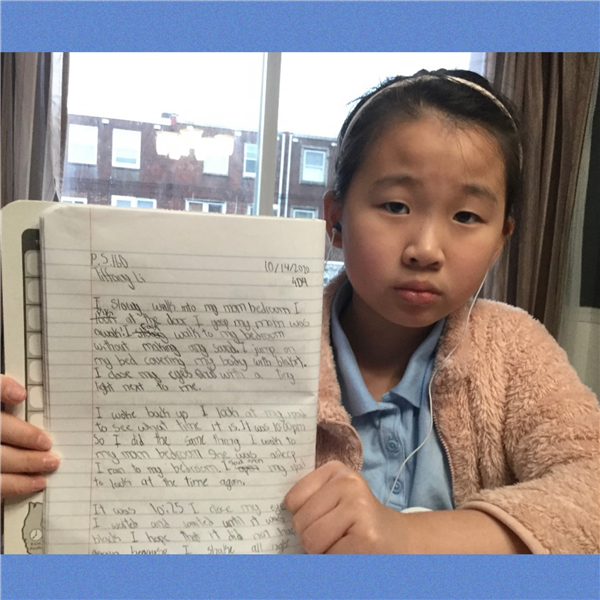 P.S.160 10/14/2020
Tiffany Li 409
I slowly walk into my mom bedroom I
at the door. I gasp my mom was
awake. I walk to my bedroom
without making any sound. I jump on
my bed covering my body with blanket.
I close my eyes with a tiny
light next to me.
I woke back up I look at my ipad
to see what time it is. It was 10:00pm
So I did the same thing I walk to
my mom bedroom She was asleep
I ran to my bedroom. I my ipad
to look at the time again.
It was 10:25 I close my eyes
I waited and waited until it was
I hope that it did not
because I shake all